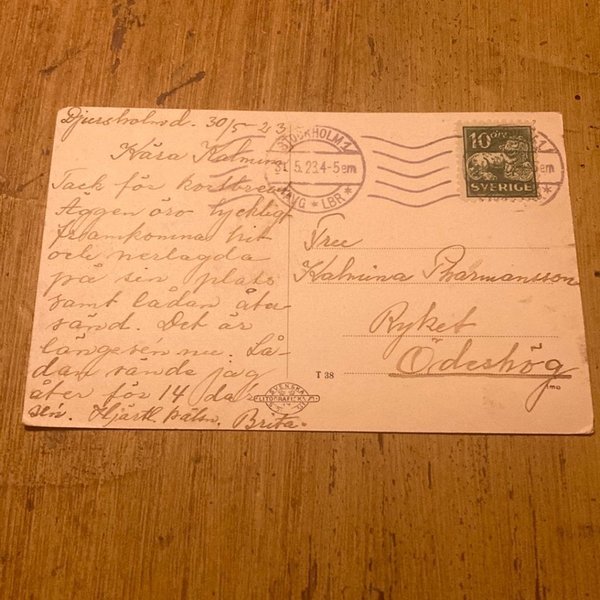 Djursholmd. 30/5 23
Kära Kalmina
Tack för kortbrevet
Äggen äro lyckligt
framkomna hit
och nerlagda
på sin plats
samt lådan åter
sänd. Det är
länge sén nu. Lå-
dan sände jag
åter för 14 da'r
sén. Hjärtl. häls. Brita.
STOCKHOLM 1
31.5.23.4-5 em
AVG * LBR *
10 ÖRE
SVERIGE
Fru
Kalmina
Ryket
Ödeshög
T 38
SVENSKA
LITOGRAFISKA